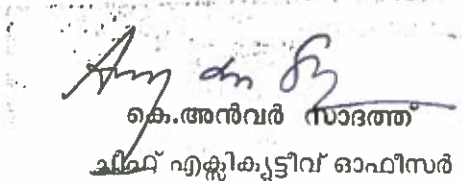 കെ.അൻവർ സാദത്ത്
ചീഫ് എക്സിക്യൂട്ടീവ് ഓഫീസർ